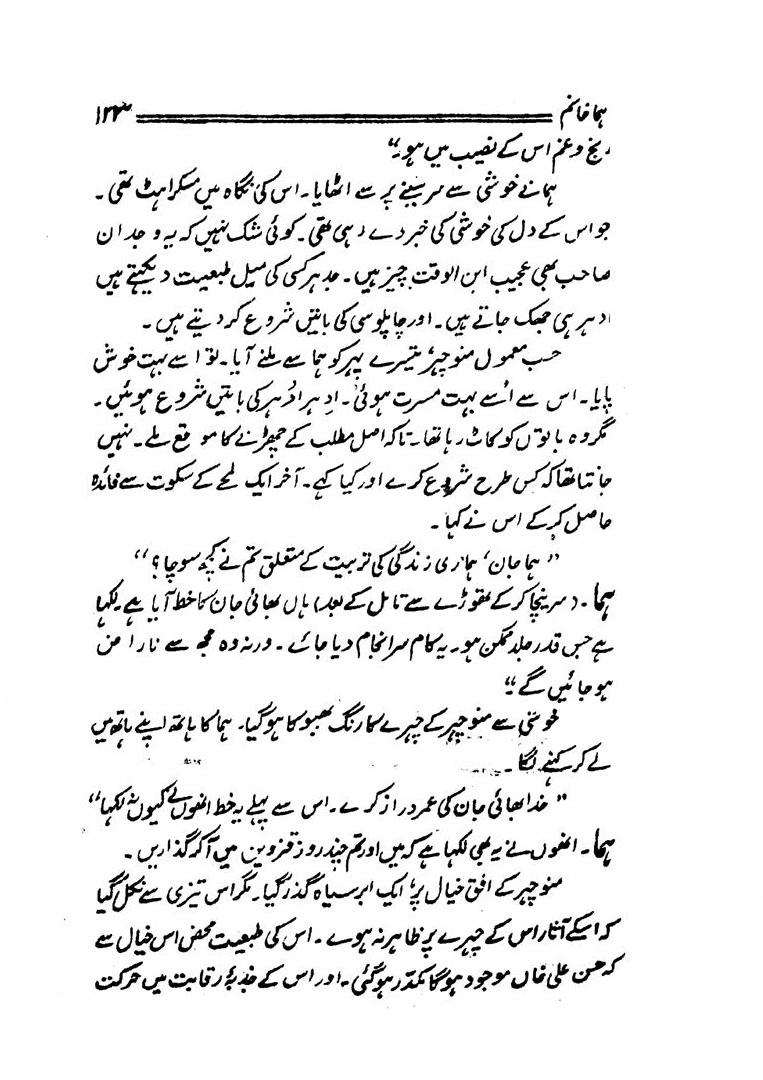 ہما خانم ۱۲۳
رنج و غم اس کے نصیب میں ہو۔"
ہما نے خوشی سے سر سینے پر سے اٹھایا۔ اس کی نگاہ میں مسکراہٹ تھی۔
جو اس کے دل کی خوشی کی خبر دے رہی تھی۔ کوئی شک نہیں کہ یہ وجدان
صاحب بھی عجیب ابن الوقت چیز ہیں۔ جدہر کسی کی میل طبیعت دیکھتے ہیں
ادہر ہی جھک جاتے ہیں۔ اور چاپلوسی کی باتیں شروع کر دیتے ہیں۔
حسب معمول منوچہر تیسرے پہر کو ہما سے ملنے آیا۔ تو اسے بہت خوش
پایا۔ اس سے اُسے بہت مسرت ہوئی۔ ادہر اُدہر کی باتیں شروع ہوئیں۔
مگر وہ باتوں کو کاٹ رہا تھا۔ تاکہ اصل مطلب کے چھیڑنے کا موقع ملے۔ نہیں
جانتا تھا کہ کس طرح شروع کرے اور کیا کہے۔ آخر ایک لمحے کے سکوت سے فائدہ
حاصل کر کے اس نے کہا۔
"ہما جان، ہماری زندگی کی تربیت کے متعلق تم نے کچھ سوچا؟"
ہما۔ (سر نیچا کر کے تھوڑے سے تامل کے بعد) ہاں بھائی جان کا خط آیا ہے۔ لکھا
ہے جس قدر جلد ممکن ہو۔ یہ کام سرانجام دیا جائے۔ ورنہ وہ مجھ سے ناراض
ہو جائیں گے۔"
خوشی سے منوچہر کے چہرے کا رنگ بھبوکا ہو گیا۔ ہما کا ہاتھ اپنے ہاتھ میں
لے کر کہنے لگا۔
"خدا بھائی جان کی عمر دراز کرے۔ اس سے پہلے یہ خط انھوں نے کیوں نہ لکھا"
ہما۔ انھوں نے یہ بھی لکھا ہے کہ میں اور تم چند روز قزوین میں آ کر گذاریں۔
منوچہر کے افق خیال پر ایک ابر سیاہ گذر گیا۔ مگر اس تیزی سے نکل گیا
کہ اسکے آثار اس کے چہرے پر ظاہر نہ ہوے۔ اس کی طبیعت محض اس خیال سے
کہ حسن علی خاں موجود ہو گا مکدّر ہو گئی۔ اور اس کے جذبۂ رقابت میں حرکت